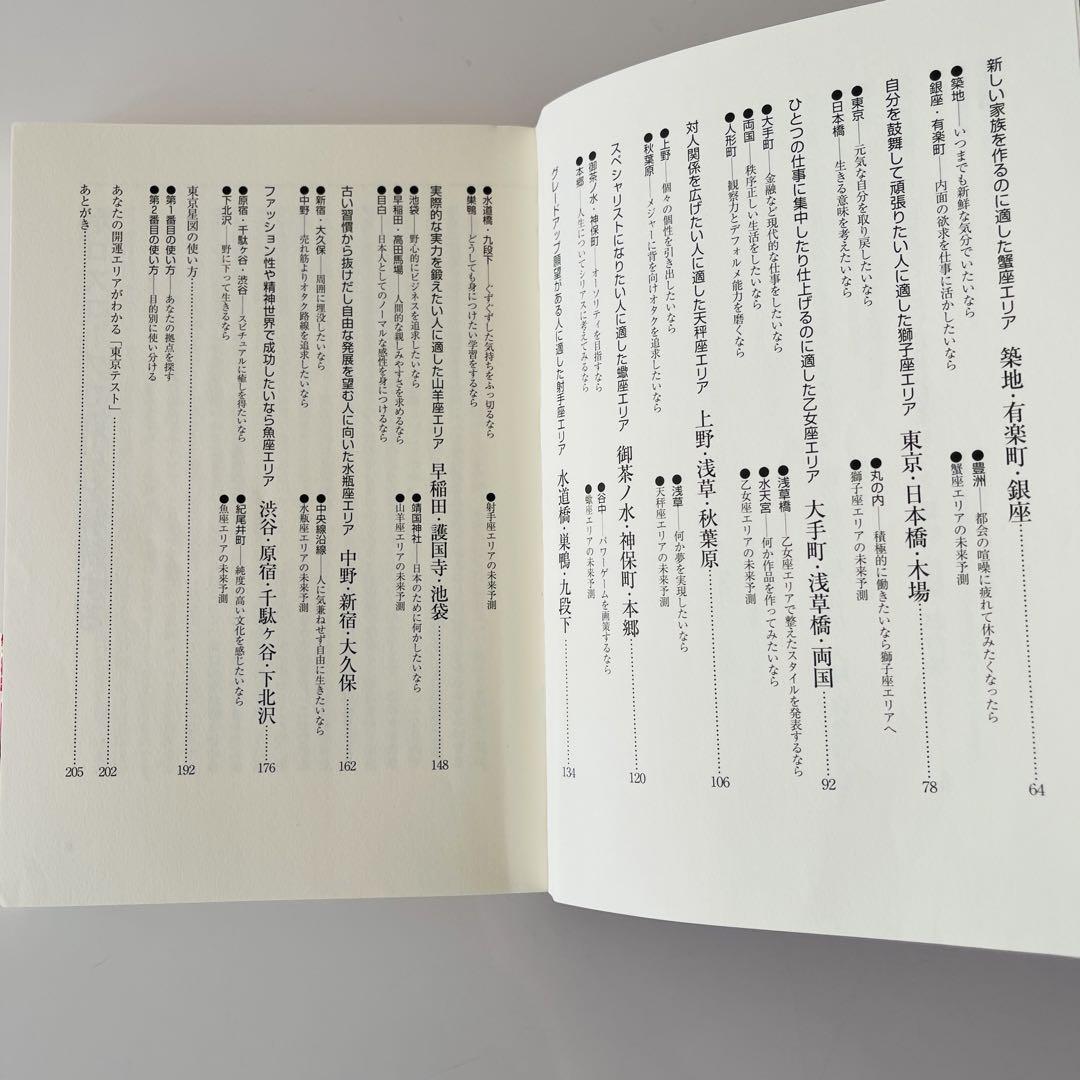 新しい家族を作るのに適した蟹座エリア 築地・有楽町・銀座………… 64
●築地――いつまでも新鮮な気分でいたいなら
●豊洲――都会の喧噪に疲れて休みたくなったら
●銀座・有楽町――内面の欲求を仕事に活かしたいなら
●蟹座エリアの未来予測
自分を鼓舞して頑張りたい人に適した獅子座エリア 東京・日本橋・木場………… 78
●東京――元気な自分を取り戻したいなら
●丸の内――積極的に働きたいなら獅子座エリアへ
●日本橋――生きる意味を考えたいなら
●獅子座エリアの未来予測
ひとつの仕事に集中したり仕上げるのに適した乙女座エリア 大手町・浅草橋・両国………… 92
●大手町――金融など現代的な仕事をしたいなら
●浅草橋――乙女座エリアで整えたスタイルを発表するなら
●両国――秩序正しい生活をしたいなら
●水天宮――何か作品を作ってみたいなら
●人形町――観察力とデフォルメ能力を磨くなら
●乙女座エリアの未来予測
対人関係を広げたい人に適した天秤座エリア 上野・浅草・秋葉原………… 106
●上野――個々の個性を引き出したいなら
●浅草――何か夢を実現したいなら
●秋葉原――メジャーに背を向けオタクを追求したいなら
●天秤座エリアの未来予測
スペシャリストになりたい人に適した蠍座エリア 御茶ノ水・神保町・本郷………… 120
●御茶ノ水・神保町――オーソリティを目指すなら
●谷中――パワーゲームを画策するなら
●本郷――人生についてシリアスに考えてみるなら
●蠍座エリアの未来予測
グレードアップ願望がある人に適した射手座エリア 水道橋・巣鴨・九段下………… 134
●水道橋・九段下――ぐずぐずした気持ちをふっ切るなら
●射手座エリアの未来予測
●巣鴨――どうしても身につけたい学習をするなら
実際的な実力を鍛えたい人に適した山羊座エリア 早稲田・護国寺・池袋………… 148
●池袋――野心的にビジネスを追求したいなら
●靖国神社――日本のために何かしたいなら
●早稲田・高田馬場――人間的な親しみやすさを求めるなら
●山羊座エリアの未来予測
●目白――日本人としてのノーマルな感性を身につけるなら
古い習慣から抜けだし自由な発展を望む人に向いた水瓶座エリア 中野・新宿・大久保………… 162
●新宿・大久保――周囲に埋没したいなら
●中央線沿線――人に気兼ねせず自由に生きたいなら
●中野――売れ筋よりオタク路線を追求したいなら
●水瓶座エリアの未来予測
ファッション性や精神世界で成功したいなら魚座エリア 渋谷・原宿・千駄ヶ谷・下北沢………… 176
●原宿・千駄ヶ谷・渋谷――スピチュアルに癒しを得たいなら
●紀尾井町――純度の高い文化を感じたいなら
●下北沢――野に下って生きるなら
●魚座エリアの未来予測
東京星図の使い方………… 192
●第1番目の使い方――あなたの拠点を探す
●第2番目の使い方――目的別に使い分ける
あなたの開運エリアがわかる「東京テスト」………… 202
あとがき………… 205